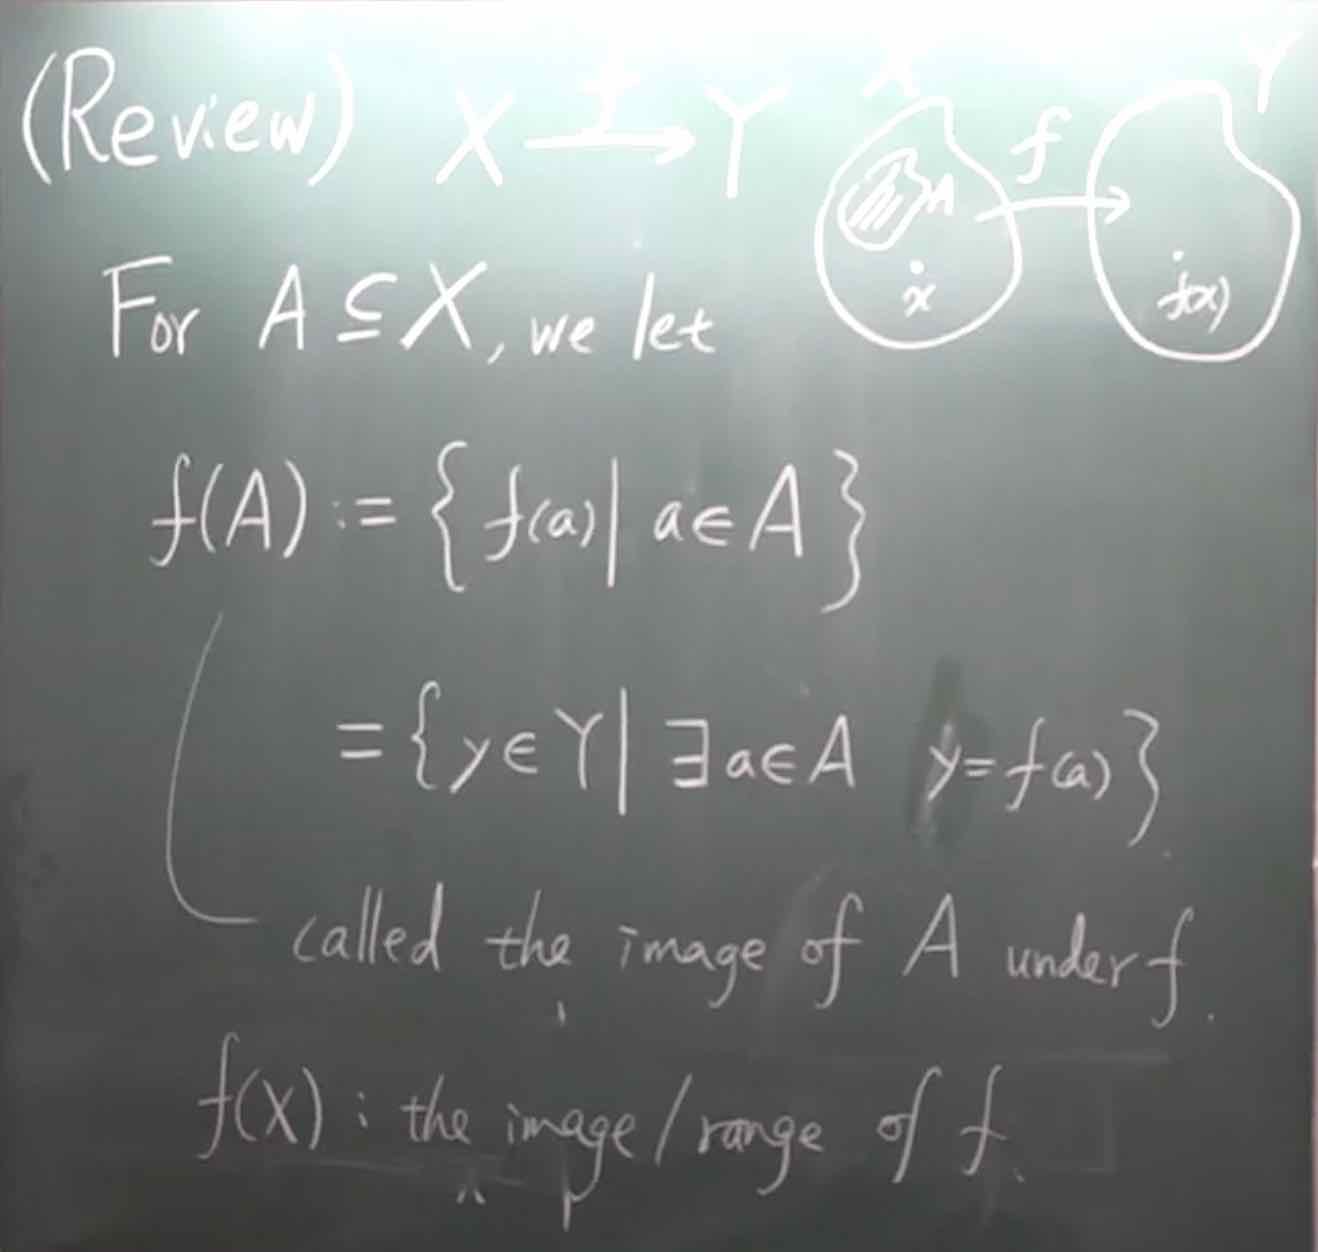 (Review) X f→ Y
X f→ Y
A
x f(x)
For A ⊆ X, we let
f(A) := { f(a) | a ∈ A }
= { y ∈ Y | ∃ a ∈ A y = f(a) }.
called the image of A under f.
f(X) : the image / range of f.